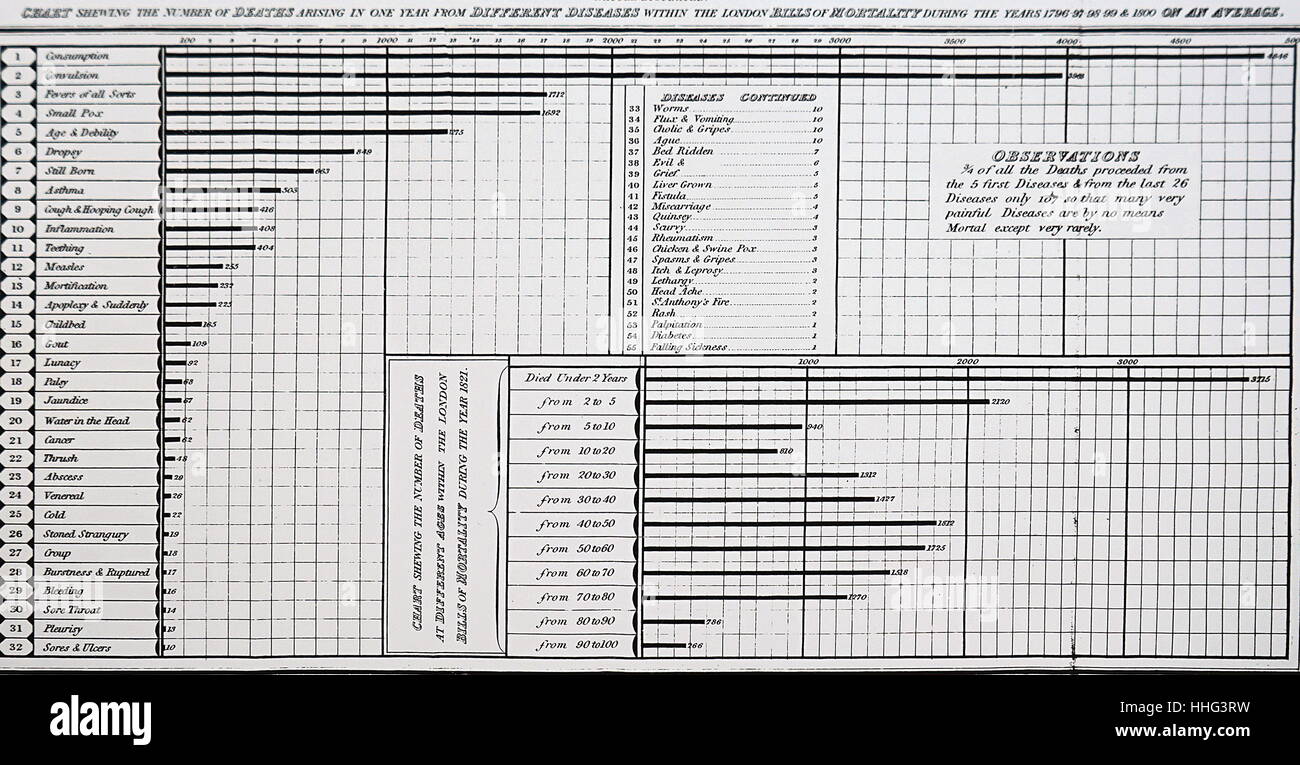 CHART SHEWING THE NUMBER OF DEATHS ARISING IN ONE YEAR FROM DIFFERENT DISEASES WITHIN THE LONDON BILLS OF MORTALITY DURING THE YEARS 1796 97 98 99 & 1800 ON AN AVERAGE.
100 2 3 4 5 6 7 8 9 1000 11 12 13 14 15 16 17 18 19 2000 21 22 23 24 25 26 27 28 29 3000 3500 4000 4500
1 Consumption
2 Convulsion
3 Fevers of all Sorts 1712
4 Small Pox 1692
5 Age & Debility
6 Dropsy 849
7 Still Born 663
8 Asthma
9 Cough & Hooping Cough 416
10 Inflammation 408
11 Teething 404
12 Measles 255
13 Mortification 232
14 Apoplexy & Suddenly 225
15 Childbed 165
16 Gout 109
17 Lunacy 92
18 Palsy 68
19 Jaundice 67
20 Water in the Head 62
21 Cancer 62
22 Thrush 48
23 Abscess 29
24 Venereal 26
25 Cold 22
26 Stoned Strangury 19
27 Croup 18
28 Burstness & Ruptured 17
29 Bleeding 16
30 Sore Throat 14
31 Pleurisy 13
32 Sores & Ulcers 10
DISEASES CONTINUED
33 Worms 10
34 Flux & Vomiting 10
35 Cholic & Gripes 10
36 Ague 10
37 Bed Ridden 7
38 Evil & 6
39 Grief 5
40 Liver Grown 5
41 Fistula 5
42 Miscarriage 4
43 Quinsey 4
44 Scurvy 3
45 Rheumatism 3
46 Chicken & Swine Pox 3
47 Spasms & Gripes 3
48 Itch & Leprosy 3
49 Lethargy 2
50 Head Ache 2
51 St. Anthony's Fire 2
52 Rash 2
53 Palpitation 1
54 Diabetes 1
55 Falling Sickness 1
OBSERVATIONS
¾ of all the Deaths proceeded from
the 5 first Diseases & from the last 26
Diseases only 107 so that many very
painful Diseases are by no means
Mortal except very rarely.
CHART SHEWING THE NUMBER OF DEATHS
AT DIFFERENT AGES WITHIN THE LONDON
BILLS OF MORTALITY DURING THE YEAR 1821.
1000 2000 3000
Died Under 2 Years 3715
from 2 to 5 2120
from 5 to 10 940
from 10 to 20 610
from 20 to 30 1312
from 30 to 40 1427
from 40 to 50 1812
from 50 to 60 1725
from 60 to 70 1518
from 70 to 80
from 80 to 90 786
from 90 to 100
alamy
alamy
alamy
alamy
Image ID: HHG3RW
www.alamy.com